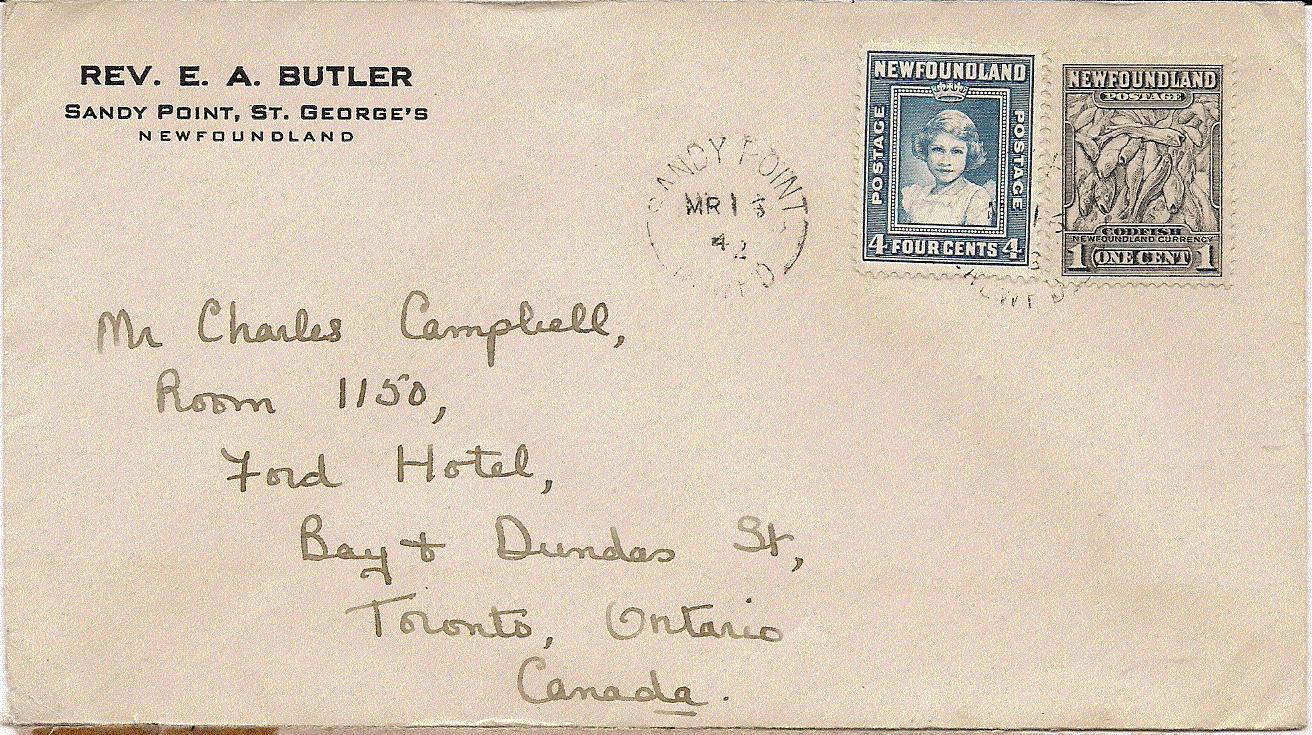 REV. E. A. BUTLER
SANDY POINT, ST. GEORGE'S
NEWFOUNDLAND
SANDY POINT
MR 13
42
NFLD
NEWFOUNDLAND
POSTAGE
POSTAGE
4 FOUR CENTS 4
NEWFOUNDLAND
POSTAGE
CODFISH
NEWFOUNDLAND CURRENCY
1 ONE CENT 1
Mr Charles Campbell,
Room 1150,
Ford Hotel,
Bay + Dundas St,
Toronto, Ontario
Canada.